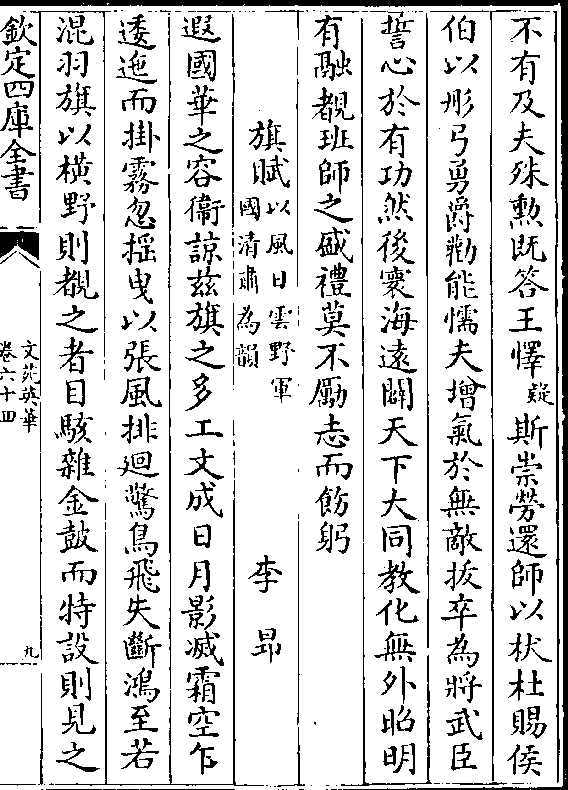 不有及夫殊勲既答王懌疑斯崇勞還師以杕杜賜侯
伯以彤弓勇爵勸能懦夫增氣於無敵拔卒為將武臣
誓心於有功然後寰海遠闢天下大同教化無外昭明
有融覩班師之盛禮莫不勵志而飭躬
旗賦以風日雲野軍國清肅為韻 李昂
遐國華之容衞諒茲旗之多工文成日月影滅霜空乍
逶迤而掛霧忽摇曳以張風排迴驚鳥飛失斷鴻至若
混羽旗以横野則覩之者目駭雜金鼓而特設則見之
欽定四庫全書
文苑英華
卷六十四
九